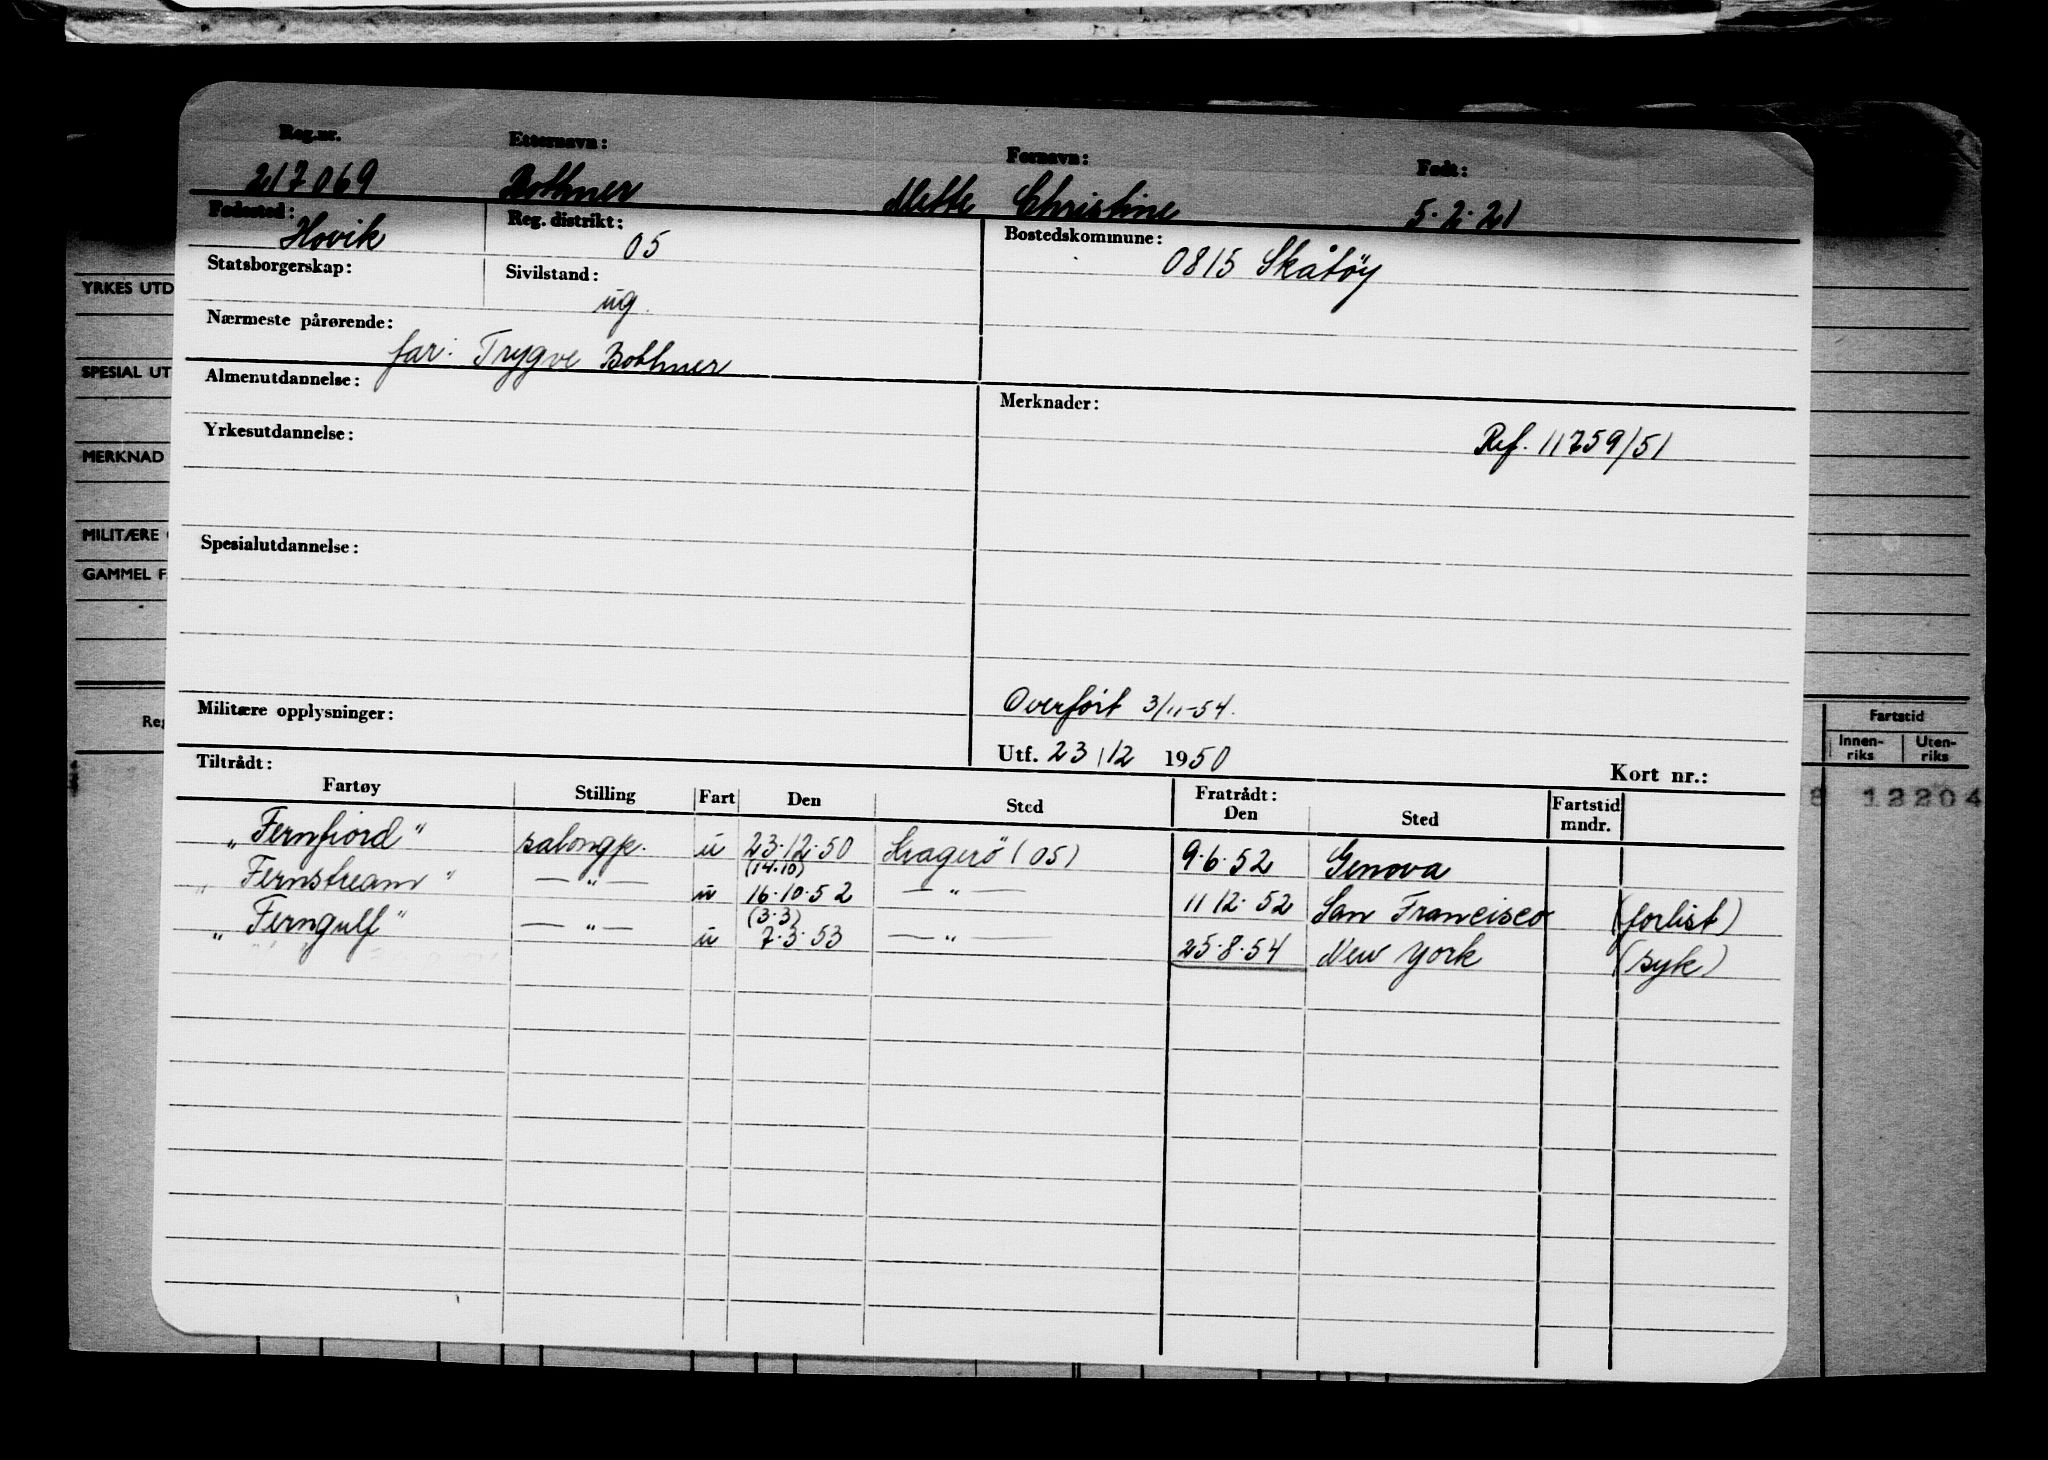 Reg.nr. Etternavn: Fornavn: Født:
217069 Bothner Mette Christine 5.2.21
Fødested: Høvik Reg. distrikt: 05 Bostedskommune: 0815 Skåtøy
Statsborgerskap: Sivilstand: ug.
Nærmeste pårørende: far: Trygve Bothner
Almenutdannelse: Merknader:
Yrkesutdannelse: Ref. 11759/51
Spesialutdannelse:
Overført 3/11-54.
Militære opplysninger:
Utf. 23/12 1950 Kort nr.:
Tiltrådt: Fratrådt:
Fartøy Stilling Fart Den Sted Den Sted Fartstid mndr.
"Fernfiord" salongp. u 23.12.50 Kragerö (05) 9.6.52 Genova
(14.10)
"Fernstream" — " — u 16.10.52 — " — 11 12.52 San Francisco (forlist)
(3.3)
"Ferngulf" — " — u 7.3.53 — " 25.8.54 New York (syk)
YRKES UTD
SPESIAL UT
MERKNAD
MILITÆRE
GAMMEL F
Reg
Fartstid
Innen-riks Uten-riks
12204